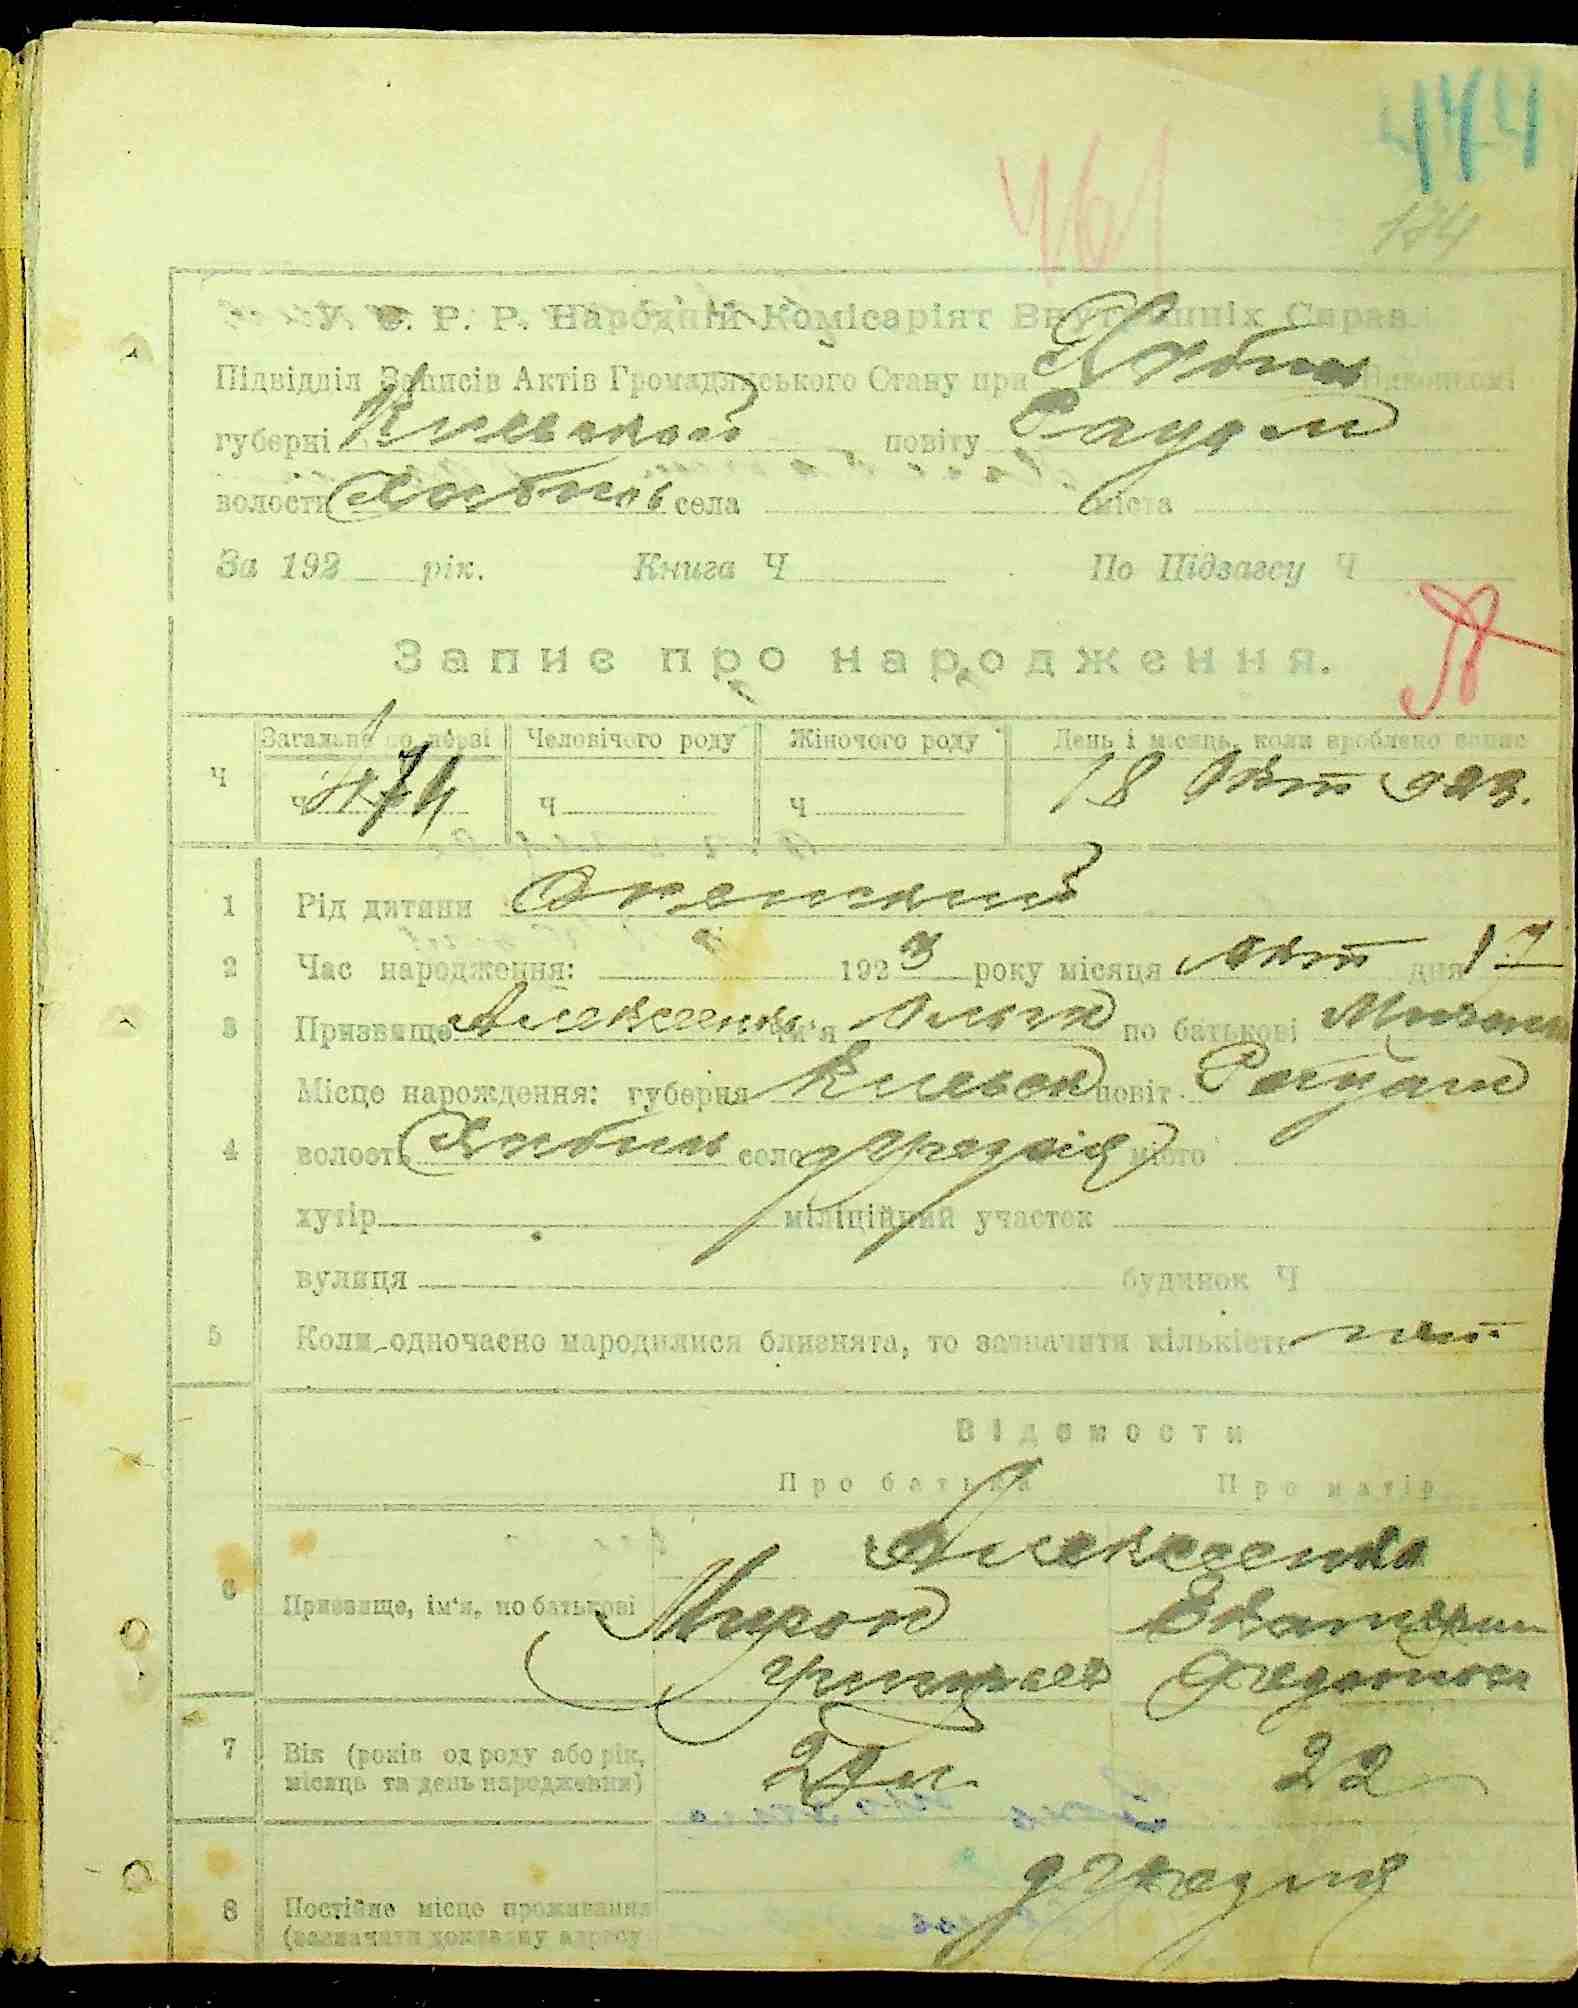 474
461
174
У. С. Р. Р. Народній Комісаріят Внутрішніх Справ.
Підвідділ Записів Актів Громадянського Стану при Хабном Виконкомі
губерні Киевской повіту Радом
волости Хабном села міста
За 192 рік. Книга Ч По Підзагсу Ч
Запис про народження.
Загальне по черзі Человічого роду Жіночого роду День і місяць, коли зроблено запис
Ч Ч 474 Ч Ч 18 Окт 923.
1 Рід дитяни Женский
2 Час народження: 1923 року місяця Окт дня 17
3 Призвище Алексеенко ім'я Ольга по батькові
Місце народження: губерня Киевск повіт Радом
4 волость Хабном село місто
хутір міліційний участок
вулиця будинок Ч
5 Коли одночасно народилися близнята, то зазначити кількість нет
Відомости
Про батька Про матір
Алексеенко
6 Призвище, ім'я, по батькові Мирон Екатерин
Федотова
7 Вік (років од роду або рік, 22
місяць та день народження)
8 Постійне місце проживання
(зазначити докладну адресу